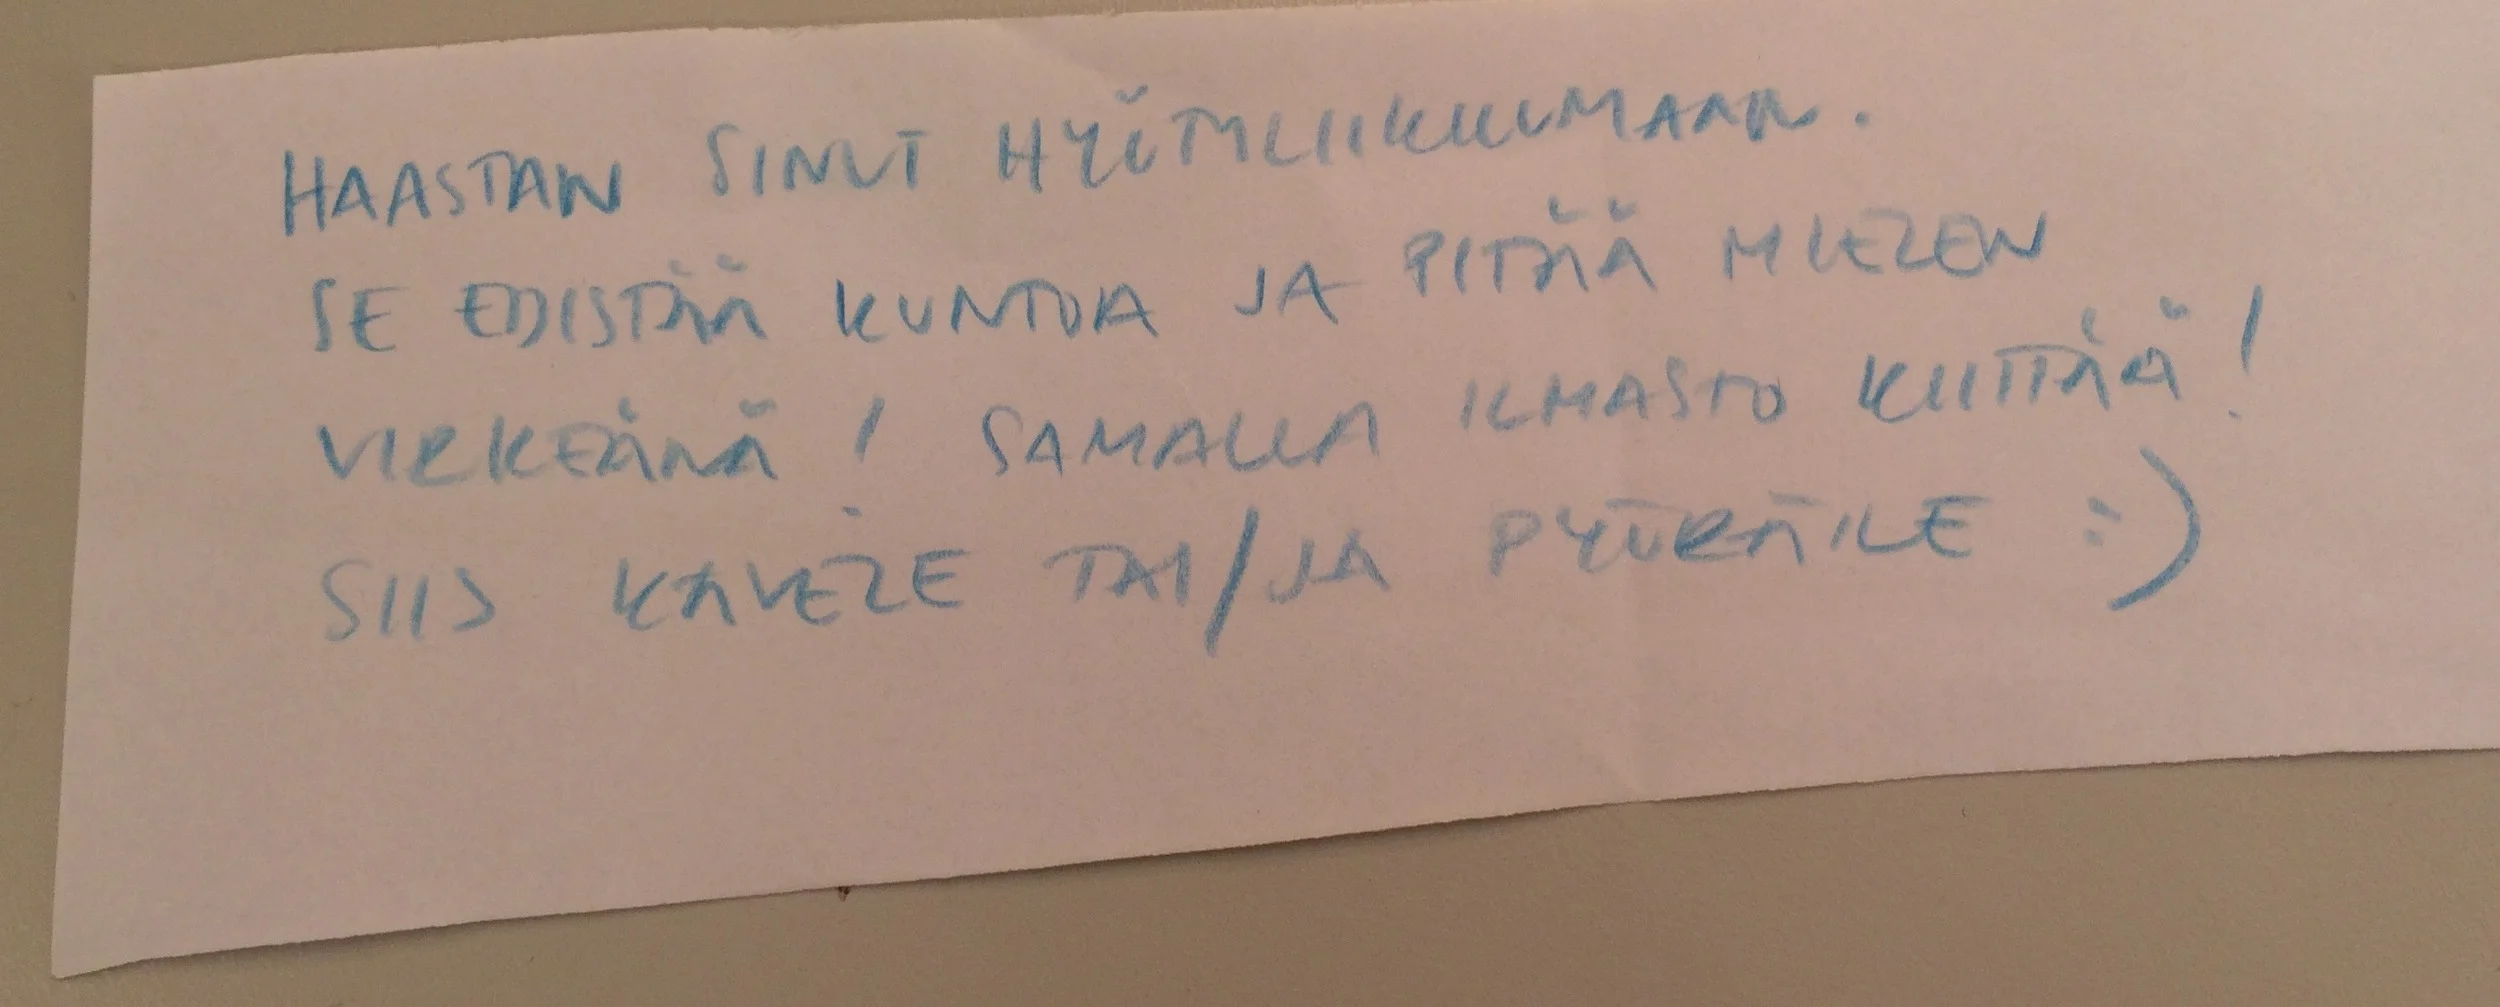 HAASTAN SINUT HYÖTYLIIKKUMAAN.
SE EDISTÄÄ KUNTOA JA PITÄÄ MIELEN
VIRKEÄNÄ! SAMALLA ILMASTO KIITTÄÄ!
SIIS KÄVELE TAI/JA PYÖRÄILE :)